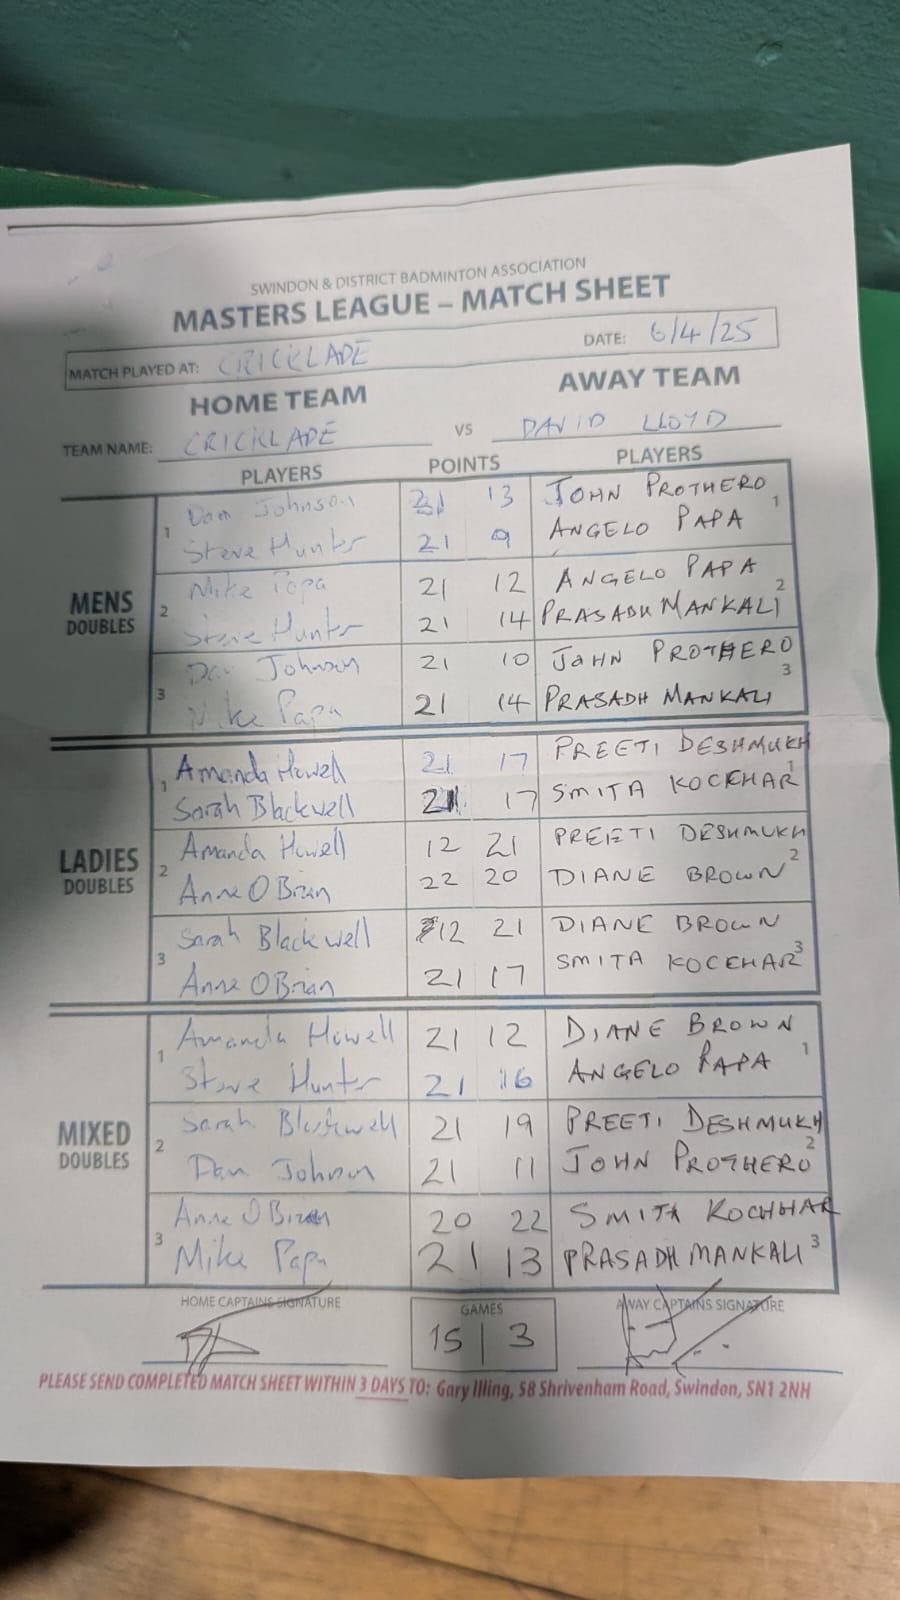 SWINDON & DISTRICT BADMINTON ASSOCIATION
MASTERS LEAGUE – MATCH SHEET
MATCH PLAYED AT: CRICKLADE DATE: 6/4/25
HOME TEAM AWAY TEAM
TEAM NAME: CRICKLADE VS DAVID LLOYD
PLAYERS POINTS PLAYERS
MENS DOUBLES
1 Dan Johnson 21 13 JOHN PROTHERO 1
Steve Hunter 21 9 ANGELO PAPA
2 Mike Papa 21 12 ANGELO PAPA 2
Steve Hunter 21 14 PRASADH MANKALI
3 Dan Johnson 21 10 JOHN PROTHERO 3
Mike Papa 21 14 PRASADH MANKALI
LADIES DOUBLES
1 Amanda Howell 21 17 PREETI DESHMUKH 1
Sarah Blackwell 21 17 SMITA KOCEHAR
2 Amanda Howell 12 21 PREETI DESHMUKH 2
Anne O Brian 22 20 DIANE BROWN
3 Sarah Blackwell 12 21 DIANE BROWN 3
Anne O Brian 21 17 SMITA KOCEHAR
MIXED DOUBLES
1 Amanda Howell 21 12 DIANE BROWN 1
Steve Hunter 21 16 ANGELO PAPA
2 Sarah Blackwell 21 19 PREETI DESHMUKH 2
Dan Johnson 21 11 JOHN PROTHERO
3 Anne O Brian 20 22 SMITA KOCHHAR 3
Mike Papa 21 13 PRASADH MANKALI
HOME CAPTAINS SIGNATURE GAMES AWAY CAPTAINS SIGNATURE
15 | 3
PLEASE SEND COMPLETED MATCH SHEET WITHIN 3 DAYS TO: Gary Illing, 58 Shrivenham Road, Swindon, SN1 2NH